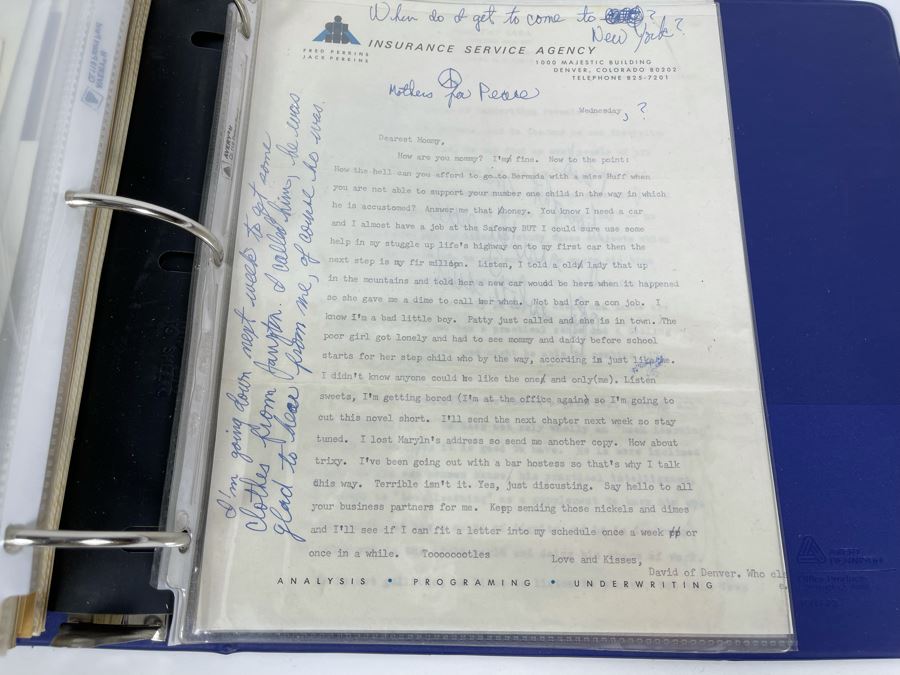 When do I get to come to ?
New York?
FRED PERKINS
JACK PERKINS
INSURANCE SERVICE AGENCY
1000 MAJESTIC BUILDING
DENVER, COLORADO 80202
TELEPHONE 825-7201
Mothers for Peace
Wednesday, ?
Dearest Mommy,
How are you mommy? I'm fine. Now to the point:
How the hell can you afford to go to Bermuda with a miss Huff when
you are not able to support your number one child in the way in which
he is accustomed? Answer me that honey. You know I need a car
and I almost have a job at the Safeway BUT I could sure use some
help in my stuggle up life's highway on to my first car then the
next step is my fir million. Listen, I told a old lady that up
in the mountains and told her a new car would be hers when it happened
so she gave me a dime to call her when. Not bad for a con job. I
know I'm a bad little boy. Patty just called and she is in town. The
poor girl got lonely and had to see mommy and daddy before school
starts for her step child who by the way, according is just like me.
I didn't know anyone could be like the one and only(me). Listen
sweets, I'm getting bored (I'm at the office again) so I'm going to
cut this novel short. I'll send the next chapter next week so stay
tuned. I lost Maryln's address so send me another copy. How about
trixy. I've been going out with a bar hostess so that's why I talk
this way. Terrible isn't it. Yes, just discusting. Say hello to all
your business partners for me. Kepp sending those nickels and dimes
and I'll see if I can fit a letter into my schedule once a week or
once in a while. Toooooootles
Love and Kisses,
David of Denver. Who els
e.
ANALYSIS • PROGRAMING • UNDERWRITING
I'm going down next week to get some
clothes from . I called him, he was
glad to hear from me, of course he was.
AVERY
AVERY
DENNISON
Office Products